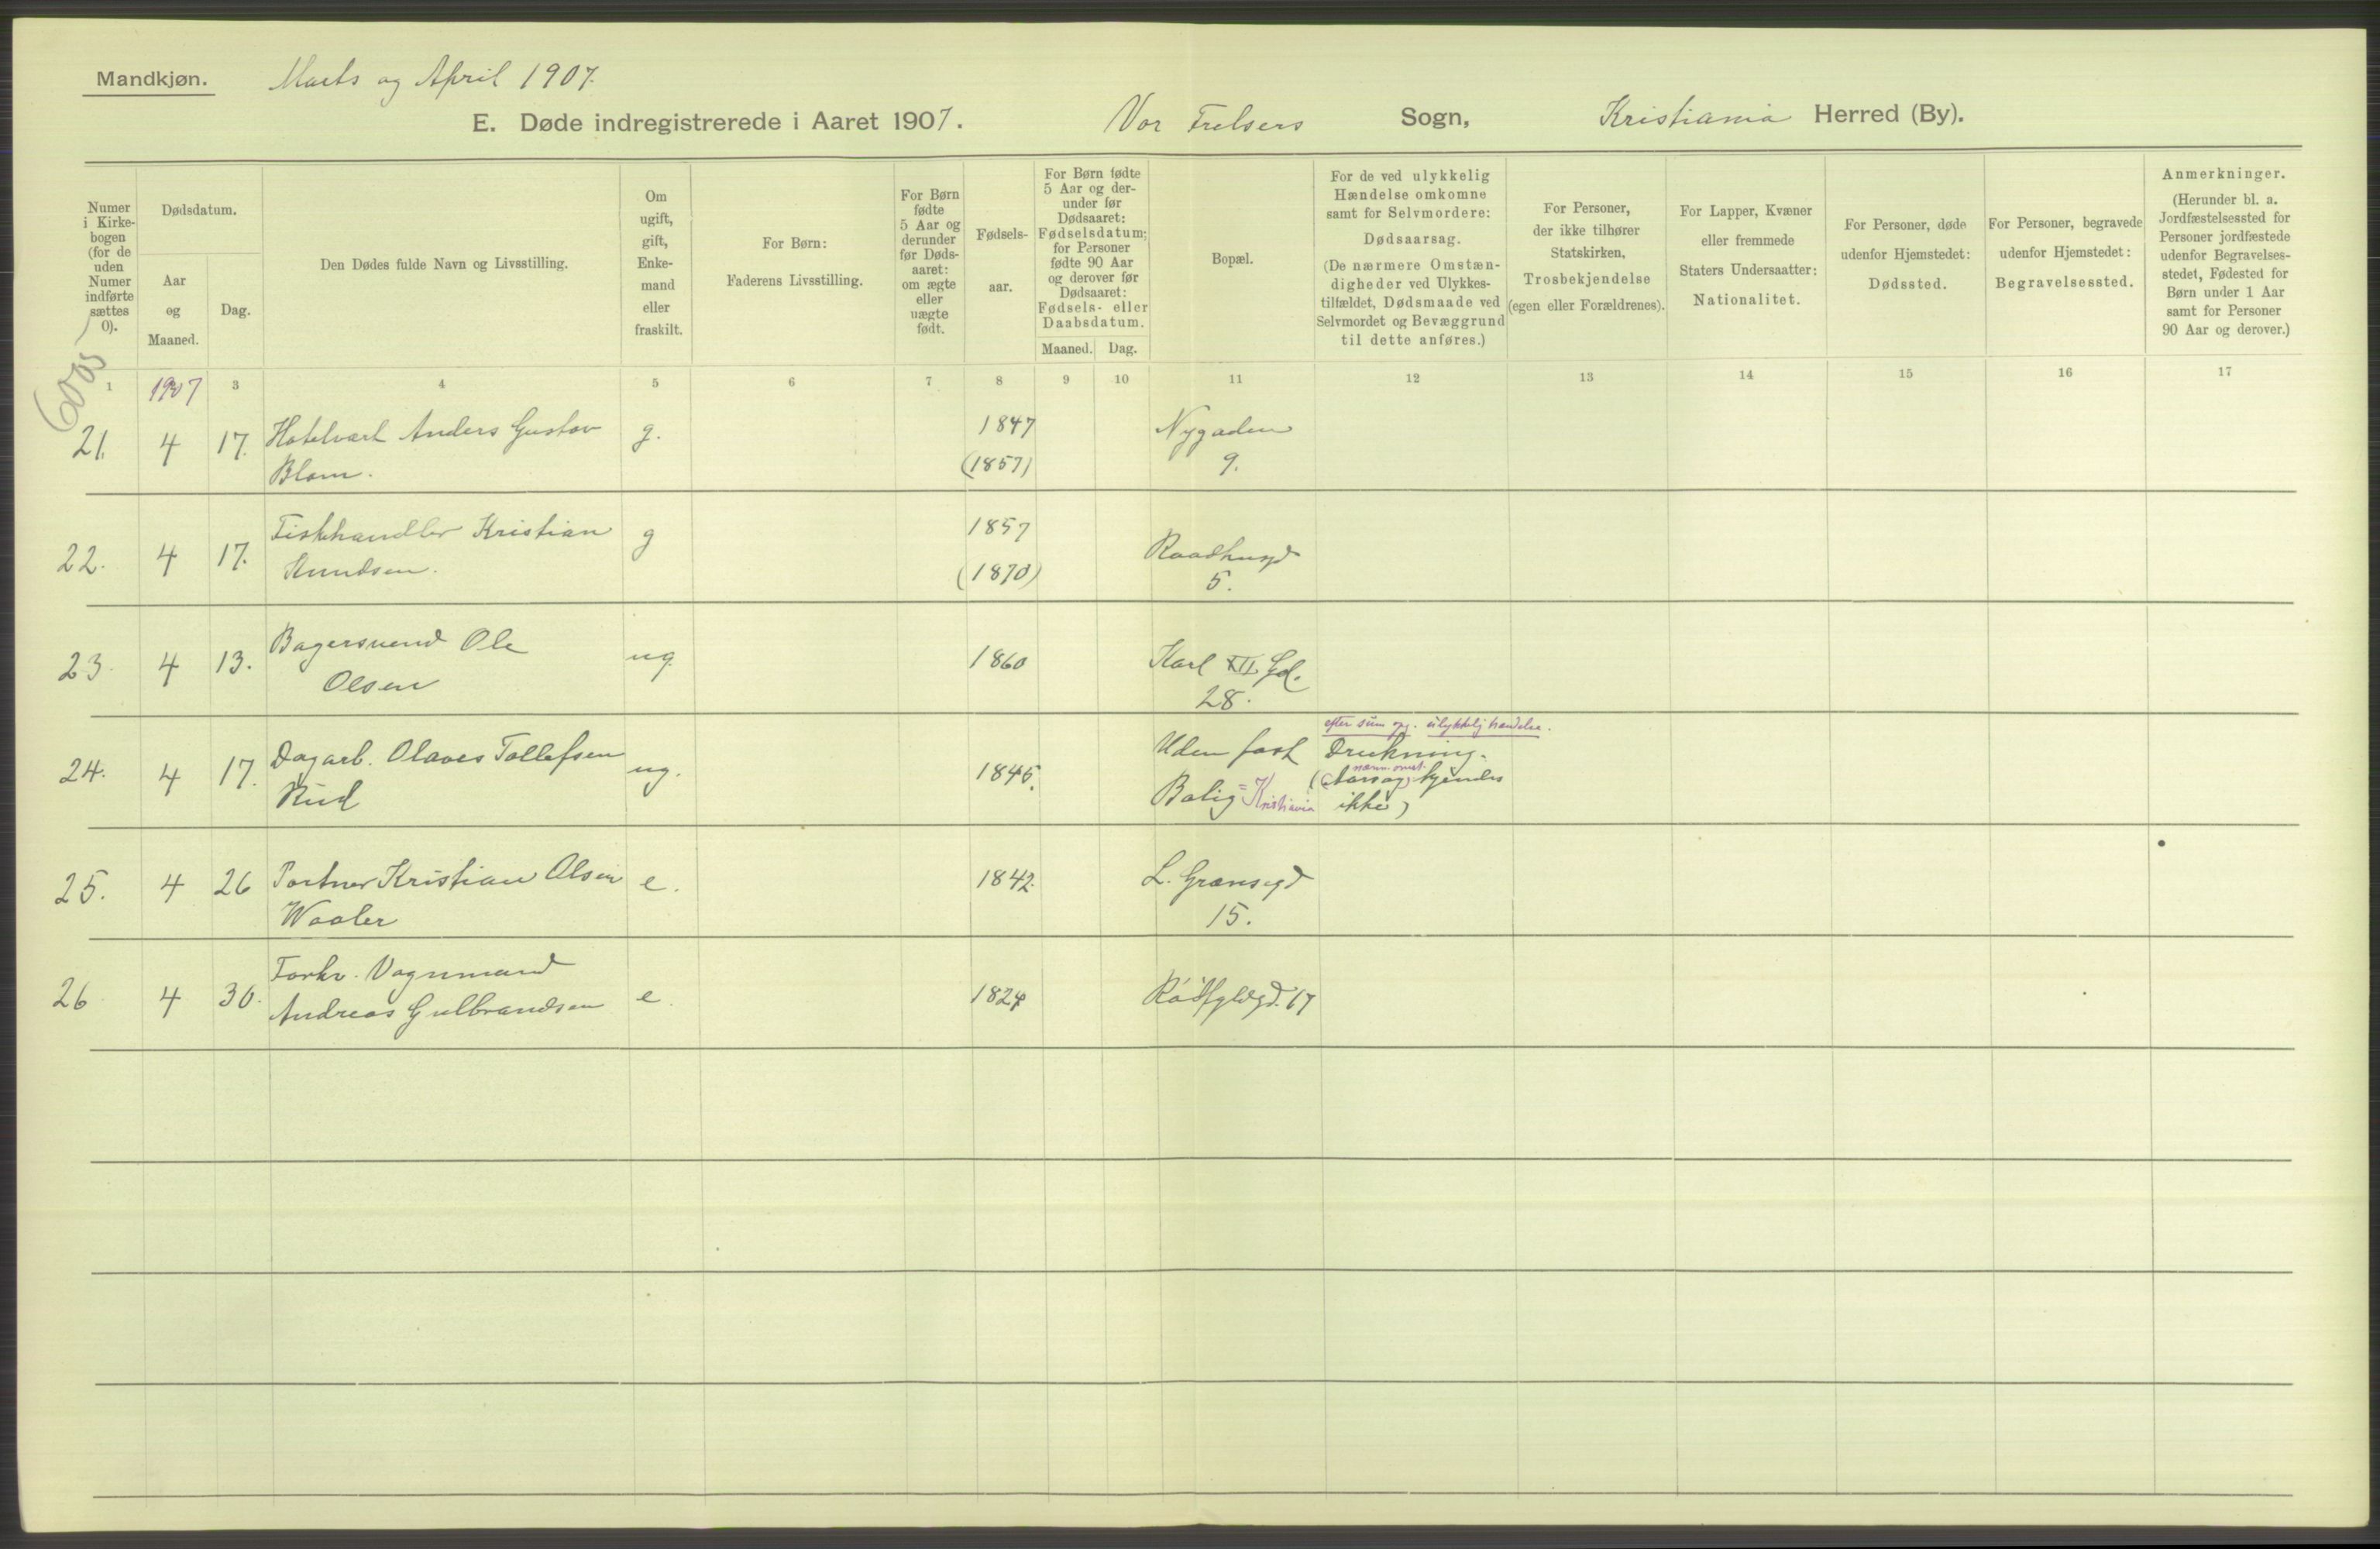 Mandkjøn. Marts og April 1907.
E. Døde indregistrerede i Aaret 1907. Vor Frelsers Sogn, Kristiania Herred (By).
Numer
i Kirke-
bogen
(for de
uden
Numer
indførte
sættes
0).
Dødsdatum.
Aar
og
Maaned.
Dag.
Den Dødes fulde Navn og Livsstilling.
Om
ugift,
gift,
Enke-
mand
eller
fraskilt.
For Børn:
Faderens Livsstilling.
For Børn
fødte
5 Aar og
derunder
før Døds-
aaret:
om ægte
eller
uægte
født.
Fødsels-
aar.
For Børn fødte
5 Aar og der-
under før
Dødsaaret:
Fødselsdatum;
for Personer
fødte 90 Aar
og derover før
Dødsaaret:
Fødsels- eller
Daabsdatum.
Maaned. Dag.
Bopæl.
For de ved ulykkelig
Hændelse omkomne
samt for Selvmordere:
Dødsaarsag.
(De nærmere Omstæn-
digheder ved Ulykkes-
tilfældet, Dødsmaade ved
Selvmordet og Bevæggrund
til dette anføres.)
For Personer,
der ikke tilhører
Statskirken,
Trosbekjendelse
(egen eller Forældrenes).
For Lapper, Kvæner
eller fremmede
Staters Undersaatter:
Nationalitet.
For Personer, døde
udenfor Hjemstedet:
Dødssted.
For Personer, begravede
udenfor Hjemstedet:
Begravelsessted.
Anmerkninger.
(Herunder bl. a.
Jordfæstelsessted for
Personer jordfæstede
udenfor Begravelses-
stedet, Fødested for
Børn under 1 Aar
samt for Personer
90 Aar og derover.)
1 1907 3 4 5 6 7 8 9 10 11 12 13 14 15 16 17
21. 4 17. Hotelvært Anders Gustav g. 1847 Nygaden
Blom. (1857) 9.
22. 4 17. Fiskehandler Kristian g 1857 Raadhusgd
Knudsen. (1870) 5.
23. 4 13. Bagersvend Ole ug. 1860 Karl XII Gd.
Olsen 28.
efter sum opg. ulykkelig hændelse.
24. 4 17. Dagarb. Olaves Tollefsen ug. 1845. Uden fast Drukning.
nærm. omst.
Rud Bolig = Kristiania (Aarsag kjendes
ikke)
25. 4 26 Portner Kristian Olsen e. 1842. L. Grænsegd
Waaler 15.
26 4 30. Forhv. Vognmand
Andreas Gulbrandsen e. 1824 Rødfyldgd. 17